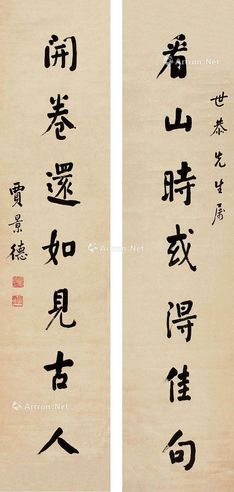 世恭先生属
看山時或得佳句
開卷還如見古人
賈景德
Artron.Net
Artron.Net
Artron.Net
Artron.Net